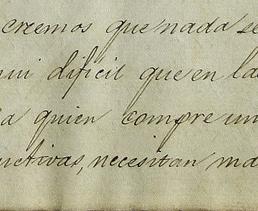 creemos que nada se
dificil que en la
a quien compre un
uctivas, necesitan ma